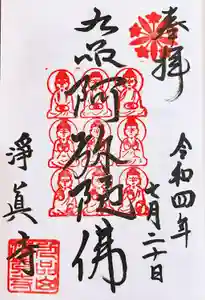 奉拝
令和四年
七月二十日
九品阿弥陀佛
浄真寺